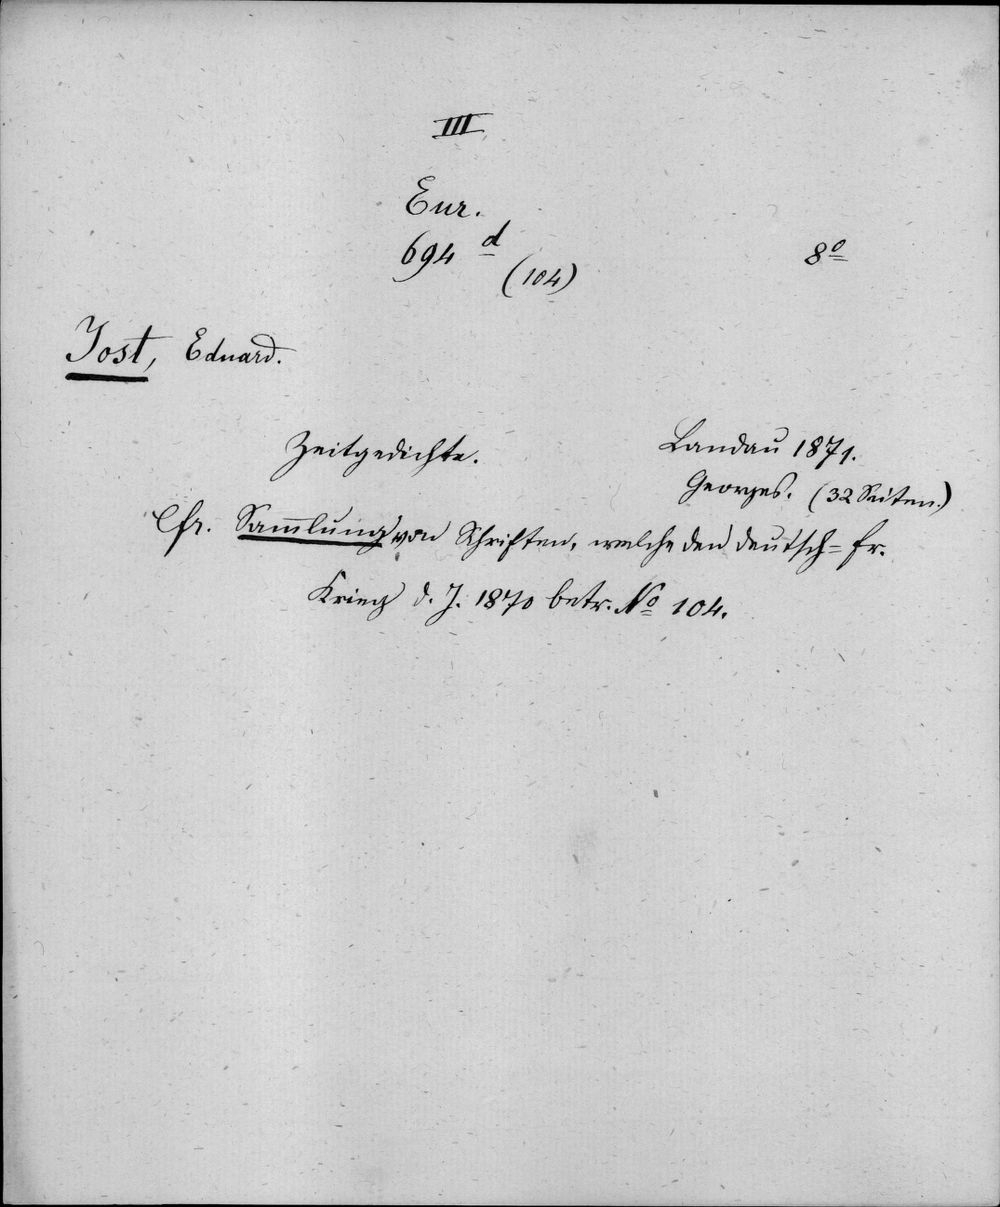 III
Eur.
694 d 8o
(104)
Jost, Eduard.
Zeitgedichte. Landau 1871.
Georges. (32 Seiten.)
Cfr. Sam̅lung von Schriften, welche den deutsch= fr.
Krieg d. J. 1870 betr. No 104.